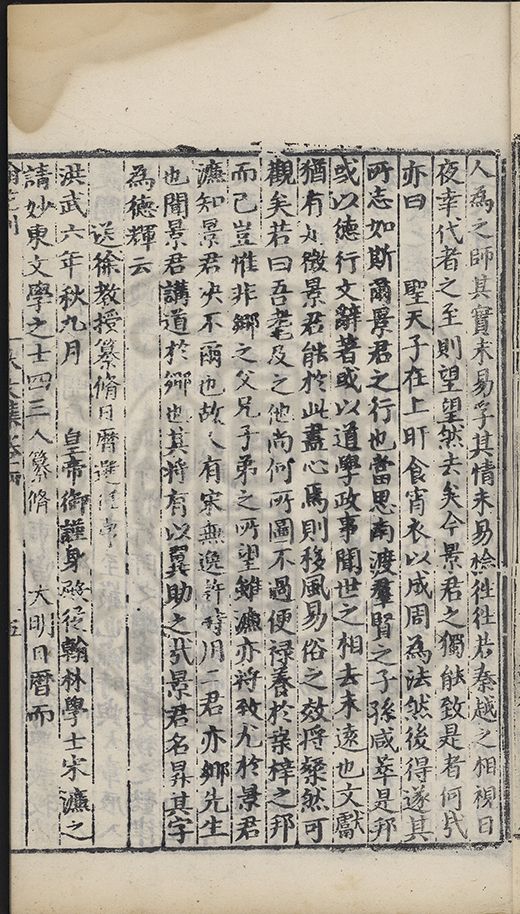 人為之師其實未易孚其情未易檢徃徃若秦越之相視日
夜幸代者之至則望望然去矣今景君之獨能致是者何㢤
亦曰　聖天子在上旰食宵衣以成周為法然後得遂其
所志如斯爾景君之行也當思南渡羣賢之子孫咸萃是邦
或以德行文辭著或以道學政事聞世之相去未遠也文獻
猶有足徵景君能於此盡心焉則移風易俗之效將粲然可
觀矣若曰吾耄及之他尚何所圖不過便禄養於桒梓之邦
而已豈惟非鄉之父兄子弟之所望雖濂亦將致尤於景君
濂知景君决不爾也故人有宋無逸許時用二君亦鄉先生
也聞景君講道於鄉也其將有以翼助之㢤景君名昇其字
為德輝云
送徐教授纂脩日曆還
洪武六年秋九月　皇帝御謹身殿從翰林學士宋濂之
請妙柬文學之士四三人纂脩　大明日曆而